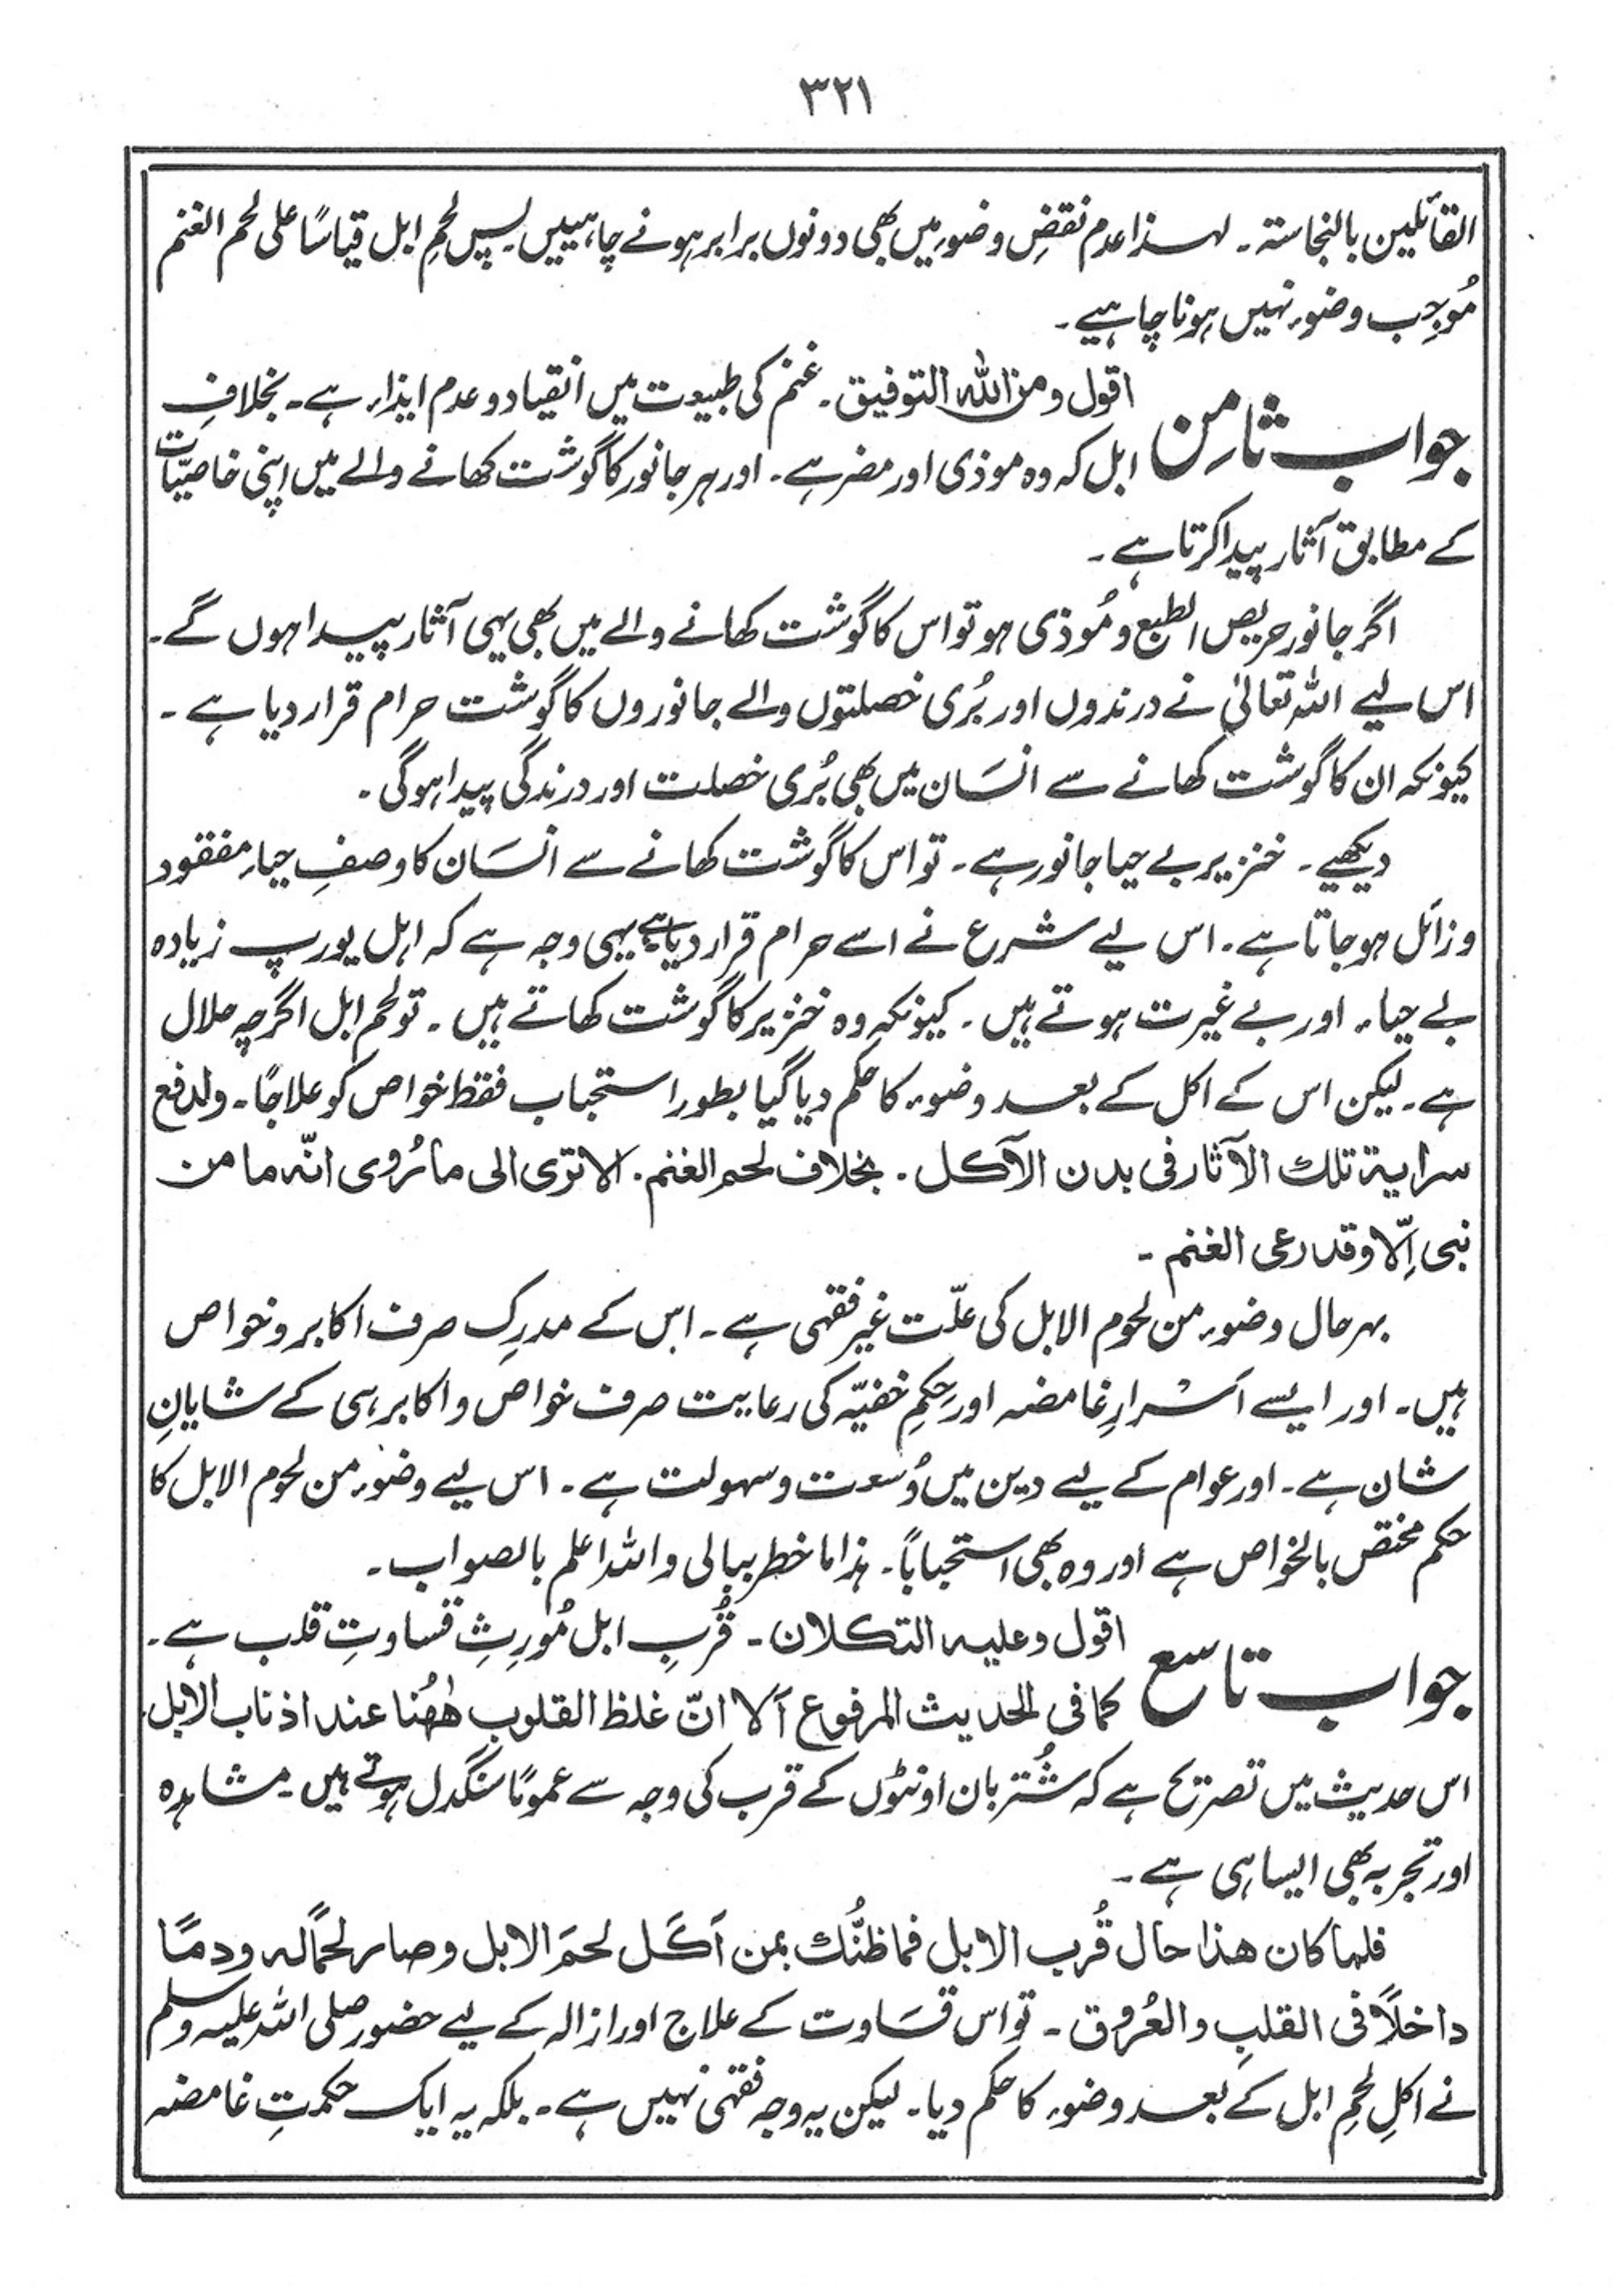 ۳۲۱
القائلین بالنجاستہ ۔ لہٰذا عدم نقضِ وضوء میں بھی دونوں برابر ہونے چاہییں۔ پس لحمِ ابل قیاسًا علی لحم الغنم
مُوجِب وضوء نہیں ہونا چاہیے ۔
جواب ثامِن
اقول ومن اللہ التوفیق ۔ غنم کی طبیعت میں انقیاد و عدم ایذاء ہے ۔ بخلافِ
ابل کہ وہ موذی اور مضر ہے ۔ اور ہر جانور کا گوشت کھانے والے میں اپنی خاصیّات
کے مطابق آثار پیدا کرتا ہے ۔
اگر جانور حریص الطبع و مُوذی ہو تو اس کا گوشت کھانے والے میں بھی یہی آثار پیدا ہوں گے ۔
اس لیے اللہ تعالیٰ نے درندوں اور بُری خصلتوں والے جانوروں کا گوشت حرام قرار دیا ہے ۔
کیونکہ ان کا گوشت کھانے سے انسَان میں بھی بُری خصلت اور درندگی پیدا ہوگی ۔
دیکھیے ۔ خنزیر بے حیا جانور ہے ۔ تو اس کا گوشت کھانے سے انسَان کا وصفِ حیاء مفقود
و زائل ہو جاتا ہے ۔ اس لیے شرع نے اسے حرام قرار دیا ہے یہی وجہ ہے کہ اہل یورپ زیادہ
بے حیاء اور بے غیرت ہوتے ہیں ۔ کیونکہ وہ خنزیر کا گوشت کھاتے ہیں ۔ تو لحم ابل اگرچہ حلال
ہے ۔ لیکن اس کے اکل کے بعد وضوء کا حکم دیا گیا بطور استحباب فقط خواص کو علاجًا ۔ ولدفع
سرایۃ تلك الآثار فی بدن الآکل ۔ بخلاف لحم الغنم ۔ الا تری الی ما رُوی انّہ ما من
نبی اِلّا وقد رعی الغنم ۔
بہر حال وضوء من لحوم الابل کی علّت غیر فقہی ہے ۔ اس کے مدرِک صرف اکابر و خواص
ہیں ۔ اور ایسے اَسْرارِ غامضہ اور حِکمِ خفیّہ کی رعایت صرف خواص و اکابر ہی کے شایانِ
شان ہے ۔ اور عوام کے لیے دین میں وُسعت و سہولت ہے ۔ اس لیے وضوء من لحوم الابل کا
حکم مختص بالخواص ہے اور وہ بھی استحباباً ۔ ہذا ما خطر ببالی واللہ اعلم بالصواب ۔
جواب تاسع
اقول وعلیہ التکلان ۔ قُربِ ابل مُورِثِ قساوتِ قلب ہے ۔
کما فی الحدیث المرفوع اَلا انّ غلظ القلوب ھٰھُنا عند اذناب الابل ۔
اس حدیث میں تصریح ہے کہ شُتر بان اونٹوں کے قرب کی وجہ سے عمومًا سنگدل ہوتے ہیں ۔ مشاہدہ
اور تجربہ بھی ایسا ہی ہے ۔
فلما کان ھذا حال قُرب الابل فما ظنُّك بمن اَکَل لحمَ الابل وصار لحمًا لہ ودمًا
داخلًا فی القلبِ والعُروق ۔ تو اس قسَاوت کے علاج اور ازالہ کے لیے حضور صلی اللہ علیہ وسلم
نے اکلِ لحمِ ابل کے بعد وضوء کا حکم دیا ۔ لیکن یہ وجہ فقہی نہیں ہے ۔ بلکہ یہ ایک حکمتِ غامضہ